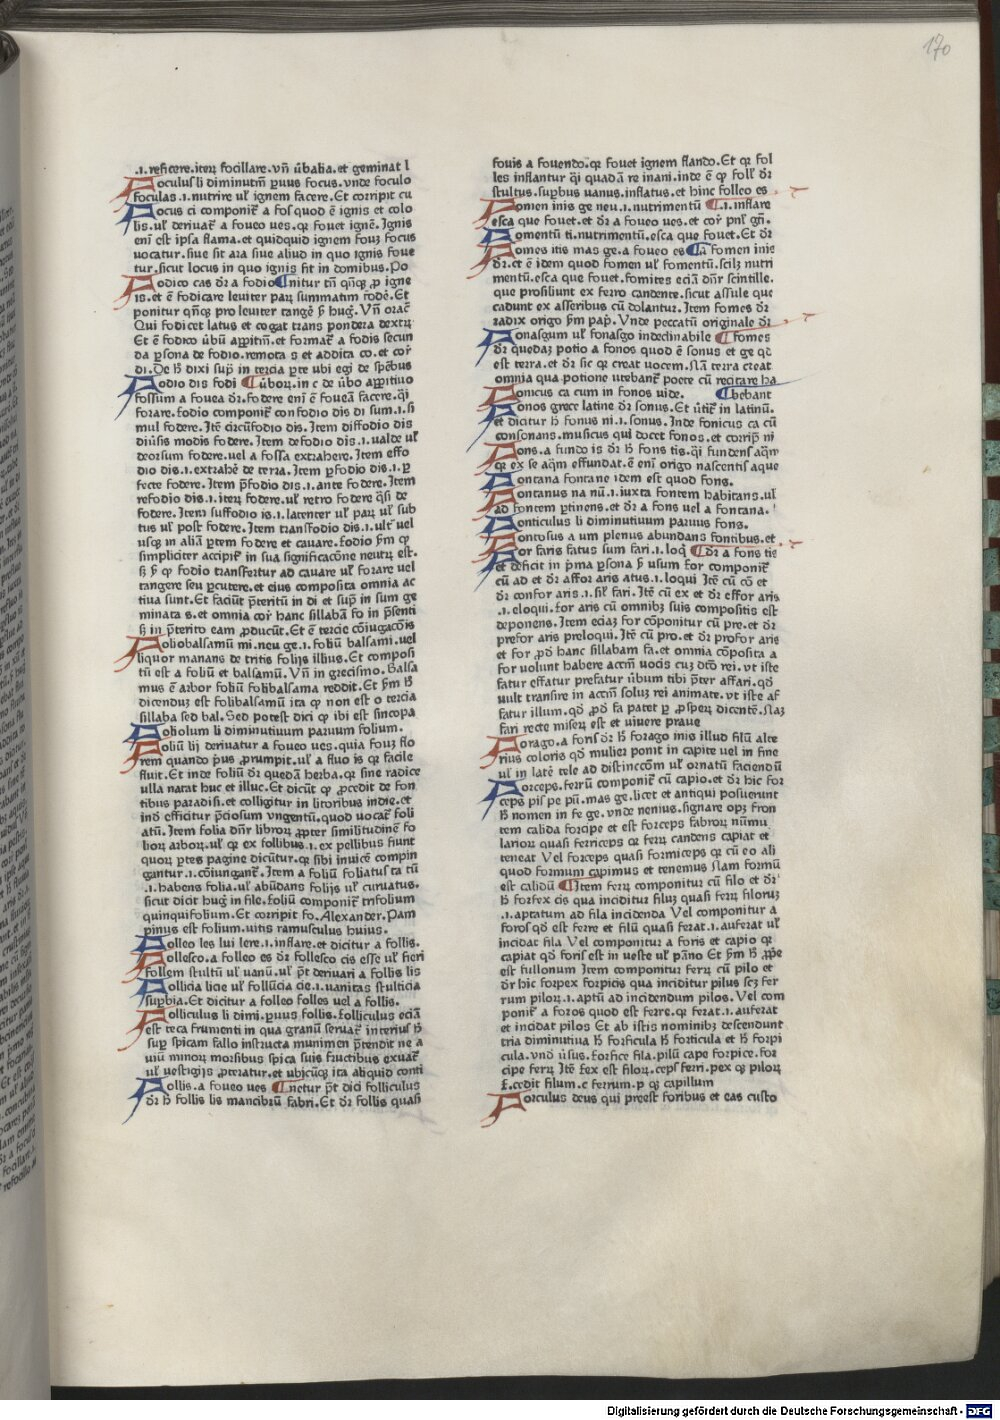 170
.i. reficere. iterꝝ focillare. vñ ũbalia. et geminat l
Foculus li diminutiũ ꝑuus focus. vnde foculo
foculas .i. nutrire uł ignem facere. Et corripit cu
Focus ci componiť a fos quod ē ignis et colo
lis. uł deriuať a foueo ues. qꝛ fouet ignē. Ignis
eni est ipsa flama. et quidquid ignem fouꝫ focus
uocatur. siue sit ara siue aliud in quo ignis foue
tur. sicut locus in quo ignis fit in domibus. Po
Fodico cas ďr a fodio nitur tñ qñqꝫ ꝓ igne
is. et ē fodicare leuiter paꝝ summatim fodē. Et
ponitur qñqꝫ pro leuiter tangē ꝥ hug̃. Vñ orac̃
Qui fodicet latus et cogat trans pondera dextrꝫ
Et ē fodico ũbũ appitiũ. et formať a fodis secun
da ꝑsona de fodio. remota s et addita co. et cor̃
di. De ħ dixi sup̃ in tercia ꝑte ubi egi de sp̃ebus
Fodio dis fodi ũboꝝ. in c de ũbo appitiuo
fossum a fouea ďr. fodere eni ē foueã facere. qͥ
forare. fodio componiť con fodio dis di sum .i. si
mul fodere. Itē circũfodio dis. Item diffodio dis
diũsis modis fodere. Item defodio dis .i. ualde uł
deorsum fodere. uel a fossa extrahere. Item effo
dio dis .i. extrahē de terra. Item ꝑfodio dis .i. ꝑ
fecte fodere. Item p̃fodio dis .i. ante fodere. Item
refodio dis .i. iterꝝ fodere. uł retro fodere q̃si de
fodere. Item suffodio is .i. latenter uł paꝝ uł sub
tus uł post fodere. Item transfodio dis .i. ult̃ uel
usqꝫ in aliã ꝑtem fodere et cauare. fodio ꝥm qꝫ
simpliciter accipiť in sua significacõne neutꝝ est.
ꝫ ꝥ qꝫ fodio transfertur ad cauare uł forare uel
tangere seu ꝑcutere. et eius composita omnia ac
tiua sunt. Et faciũt p̃teritũ in di et sup̃ in sum ge
minata s. et omnia cor̃ hanc sillabã fo in p̃senti
ꝫ in p̃terito eam ꝓducũt. Et ē tercie cõiugacõis
Foliobalsamũ mi. neu ge .i. foliũ balsami. uel
liquor manans de tritis folijs illius. Et composi
tũ est a foliũ et balsamũ. Vñ in grecismo. Balsa
mus ē arbor foliũ folibalsama reddit. Et ꝥm ħ
dicendũ est folibalsamũ ita qꝫ non est o tercia
sillaba sed bal. Sed potest dici qꝫ ibi est sincopa
Foliolum li diminutiuum paruum folium.
Foliũ lij deriuatur a foueo ues. quia fouꝫ flo
rem quando p̃us ꝓrumpit. uł a fluo is qꝛ facile
fluit. Et inde foliũ ďr quedã herba. qꝛ sine radice
ulla natat huc et illuc. Et dicũt qꝫ ꝓcedit de fon
tibus paradisi. et colligitur in litoribus indie. et
inď efficitur p̃ciosum vngentũ. quod uocať foli
atũ. Item folia dñr libroꝝ ꝓpter similitudinē fo
lioꝝ arboꝝ. uł qꝛ ex follibus .i. ex pellibus fiunt
quoꝝ ꝑtes pagine dicũtur. qꝛ sibi inuicē compin
gantur .i. cõiunganť. Item a foliũ foliatus ta tũ
.i. habens folia. uł abũdans folijs uł curuatus.
sicut dicit hug̃ in file. foliũ componiť trifolium
quinquifolium. Et corripit fo. Alexander. Pam
pinus est folium. uitis ramusculus huius.
Folleo les lui lere .i. inflare. et dicitur a follis.
Follesco. a folleo es ďr follesco cis esse uł fieri
follem stultũ uł uanũ. uł p̃t deriuari a follis lis
Follicia licie uł follũcia cie .i. uanitas stulticia
suꝑbia. Et dicitur a folleo folles uel a follis.
Folliculus li dimi. ꝑuus follis. folliculus eciã
est teca frumenti in qua granũ seruať interius ħ
suꝑ spicam fallo instructa munimen p̃tendit ne a
uiũ minoꝝ morsibus spica suis fructibus exuať
uł uestigijs ꝓteratur. et ubicũqꝫ ita aliquid conti
Follis. a foueo ues netur p̃t dici folliculus
ďr ħ follis lis mancibrũ fabri. Et ďr follis quasi
fouis a fouendo. qꝛ fouet ignem flando. Et qꝛ fol
les inflantur q̃i quadã re inani. inde ē qꝫ foll̃ ďr
stultus. suꝑbus uanus. inflatus. et hinc folleo es
Fomen inis ge neu .i. nutrimentũ .i. inflare
esca que fouet. et ďr a foueo ues. et cor̃ pnł gñ.
Fomentũ ti. nutrimentũ. esca que fouet. Et ďr
Fomes itis mas ge. a foueo es a fomen inis
ďr. et ē idem quod fomen uł fomentũ. scilꝫ nutri
mentũ. esca que fouet. fomites eciã dñr scintille.
que prosiliunt ex ferro candente. sicut assule que
cadunt ex asseribus cũ dolantur. Item fomes ďr
radix origo ꝥm pap̃. Vnde peccatũ originale ďr
Fonasgum uł fonasgo indeclinabile fomes
ďr quedaꝫ potio a fonos quod ē sonus et ge qď
est terra. et ďr sic qꝛ creat uocem. Nã terra creat
omnia qua potione utebanť poete cũ recitare ha
Fonicus ca cum in fonos uide. bebant
Fonos grece latine ďr sonus. Et ũtiť in latinũ.
et dicitur ħ fonus ni .i. sonus. Inde fonicus ca cũ
consonans. musicus qui docet fonos. et corrip̃ ni
Fons. a fundo is ďr ħ fons tis. q̃i fundens aq̃m
qꝛ ex se aq̃m effundat. ē eni origo nascentis aque
Fontana fontane idem est quod fons.
Fontanus na nũ .i. iuxta fontem habitans. uł
ad fontem ꝑtinens. et ďr a fons uel a fontana.
Fonticulus li diminutiuum paruus fons.
Fontosus a um plenus abundans fontibus. et
For faris fatus sum fari .i. loq̃ ďr a fons tis
et deficit in p̃ma ꝑsona ꝥ usum for componiť
cũ ad et ďr affor aris atus .i. loqui Itē cũ cõ et
ďr confor aris .i. sił fari. Itē cũ ex et ďr effor aris
.i. eloqui. for aris cũ omnibꝫ suis compositis est
deponens. Item eciaꝫ for cõponitur cũ pre. et ďr
prefor aris preloqui. Itē cũ pro. et ďr profor aris
et for ꝓď hanc sillabam fa. et omnia cõposita a
for uolunt habere accm̃ uocis cuꝫ dcõ rei. vt iste
fatur effatur prefatur ũbum tibi p̃ter affari. qď
uult transire in accm̃ soluꝫ rei animate. vt iste af
fatur illum. qď ꝓď fa patet ꝑ ꝓsperũ dicentē. Naꝫ
fari recte miseꝝ est et uiuere praue
Forago. a fors ďr ħ forago inis illud filũ alte
rius coloris qď mulieꝫ ponit in capite uel in fine
uł in latē tele ad distinccõm uł ornatũ faciendũ
Forceps. ferrũ componiť cũ capio. et ďr hic for
ceps pis pe pũ. mas ge. licet et antiqui posuerunt
ħ nomen in fe ge. vnde nenius. signare opꝫ fron
tem calida forcipe et est forceps fabroꝝ nũmu
larioꝝ quasi ferriceps qꝛ ferꝝ candens capiat et
teneat Vel forceps quasi formiceps qꝛ cũ eo ali
quod formum capimus et tenemus Nam formũ
est calidũ Item ferꝝ componitur cũ filo et ďr
ħ forfex cis qua inciditur filuꝫ quasi ferꝝ filorꝫ
.i. aptatum ad fila incidenda Vel componitur a
foros qď est ferre et filũ quasi ferat .i. auferat uł
incidat fila Vel componitur a foris et capio qꝛ
capiat qď foris est in ueste uł pãno Et ꝥm ħ ꝓp̃e
est fullonum Item componitur ferꝝ cũ pilo et
ďr hic forpex forpicis qua inciditur pilus scꝫ fer
rum piloꝝ .i. aptũ ad incidendum pilos. Vel com
poniť a foros quod est ferre. qꝛ ferat .i. auferat
et incidat pilos Et ab istis nominibꝫ descendunt
tria diminutiua ħ forficula ħ forticula et ħ forpi
cula. vnď ũsus. forfice fila. pilũ cape forpice. for
cipe ferꝝ Itē fex est filoꝝ. ceps ferri. pex qꝫ piloꝝ
f. cedit filum. c ferrum. p qꝫ capillum
Forculus deus qui preest foribus et eas custo
Digitalisierung gefördert durch die Deutsche Forschungsgemeinschaft - DFG